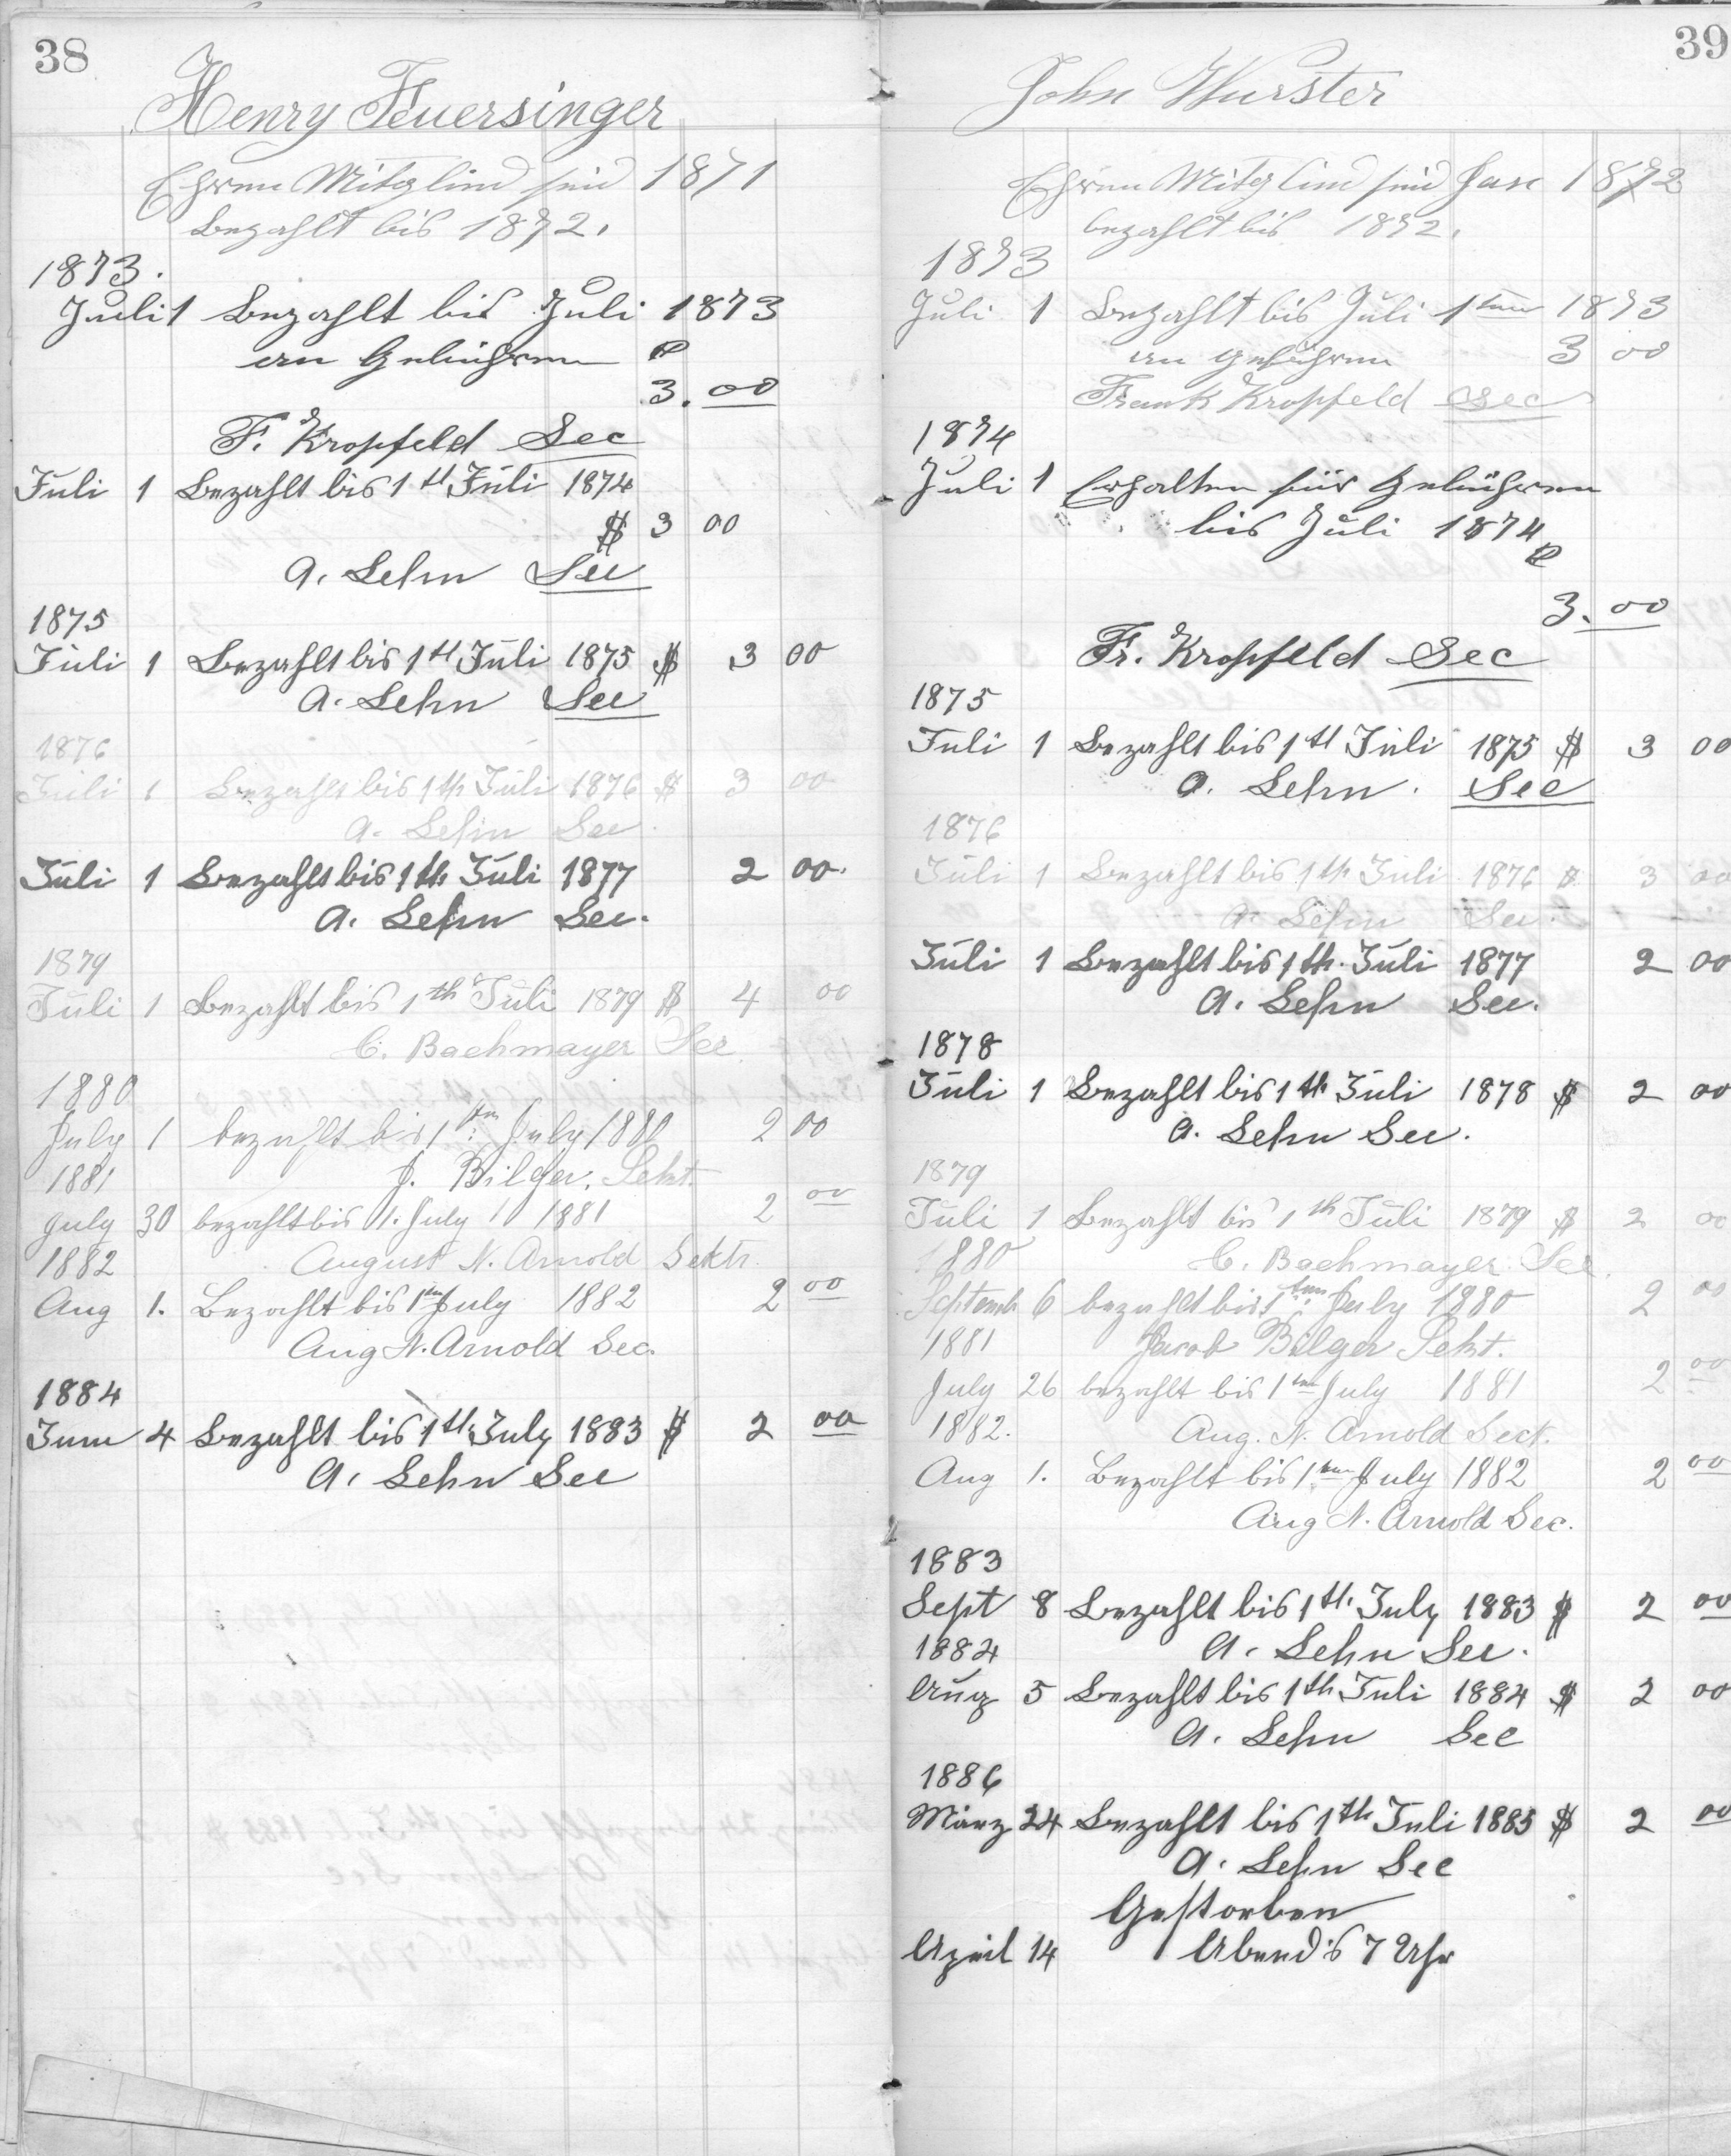 38
Henry Feuersinger
Ehren Mitglied seid 1871
Bezahlt bis 1872.
1873.
Juli 1 Bezahlt bis Juli 1873
an Gebühren $
3.00
F. Kropfeld Sec
Juli 1 Bezahlt bis 1th Juli 1874
$ 3 00
A. Lehn Sec
1875
Juli 1 Bezahlt bis 1th Juli 1875 $ 3 00
A. Lehn Sec
1876
Juli 1 Bezahlt bis 1th Juli 1876 $ 3 00
A. Lehn Sec.
Juli 1 Bezahlt bis 1th Juli 1877 2 00.
A. Lehn Sec.
1879
Juli 1 Bezahlt bis 1th Juli 1879 $ 4 00
C. Bachmayer Sec.
1880
July 1 bezahlt bis 1ten July 1880 2 00
1881 J. Bilger, Sekt.
July 30 bezahlt bis 1. July 1881 2 00
1882 August N. Arnold Sektr.
Aug 1. Bezahlt bis 1ten July 1882 2 00
Aug N. Arnold Sec.
1884
Juni 4 Bezahlt bis 1th July 1883 $ 2 00
A. Lehn Sec
39
John Wurster
Ehren Mitglied seid Jan 1872
bezahlt bis 1872.
1873
Juli 1 Bezahlt bis Juli 1ten 1873
an Gebühren 3 00
Frank Kropfeld Sec
1874
Juli 1 Erhalten für Gebühren
bis Juli 1874 $
3.00
Fr. Kropfeld Sec
1875
Juli 1 Bezahlt bis 1th Juli 1875 $ 3 00
A. Lehn. Sec
1876
Juli 1 Bezahlt bis 1th Juli 1876 $ 3 00
A. Lehn Sec.
Juli 1 Bezahlt bis 1th. Juli 1877 2 00
A. Lehn Sec.
1878
Juli 1 Bezahlt bis 1th Juli 1878 $ 2 00
A. Lehn Sec.
1879
Juli 1 Bezahlt bis 1th Juli 1879 $ 2 00
1880 C. Bachmayer Sec.
Septemb 6 bezahlt bis 1ten July 1880 2 00
1881 Jacob Bilger Sekt.
July 26 bezahlt bis 1ten July 1881 2 00
1882. Aug. N. Arnold Sect.
Aug 1. Bezahlt bis 1ten July 1882 2 00
Aug N. Arnold Sec.
1883
Sept 8 Bezahlt bis 1th. July 1883 $ 2 00
1884 A. Lehn Sec.
Aug 5 Bezahlt bis 1th Juli 1884 $ 2 00
A. Lehn Sec
1886
März 24 Bezahlt bis 1th Juli 1885 $ 2 00
A. Lehn Sec
Gestorben
April 14 Abend's 7 Uhr